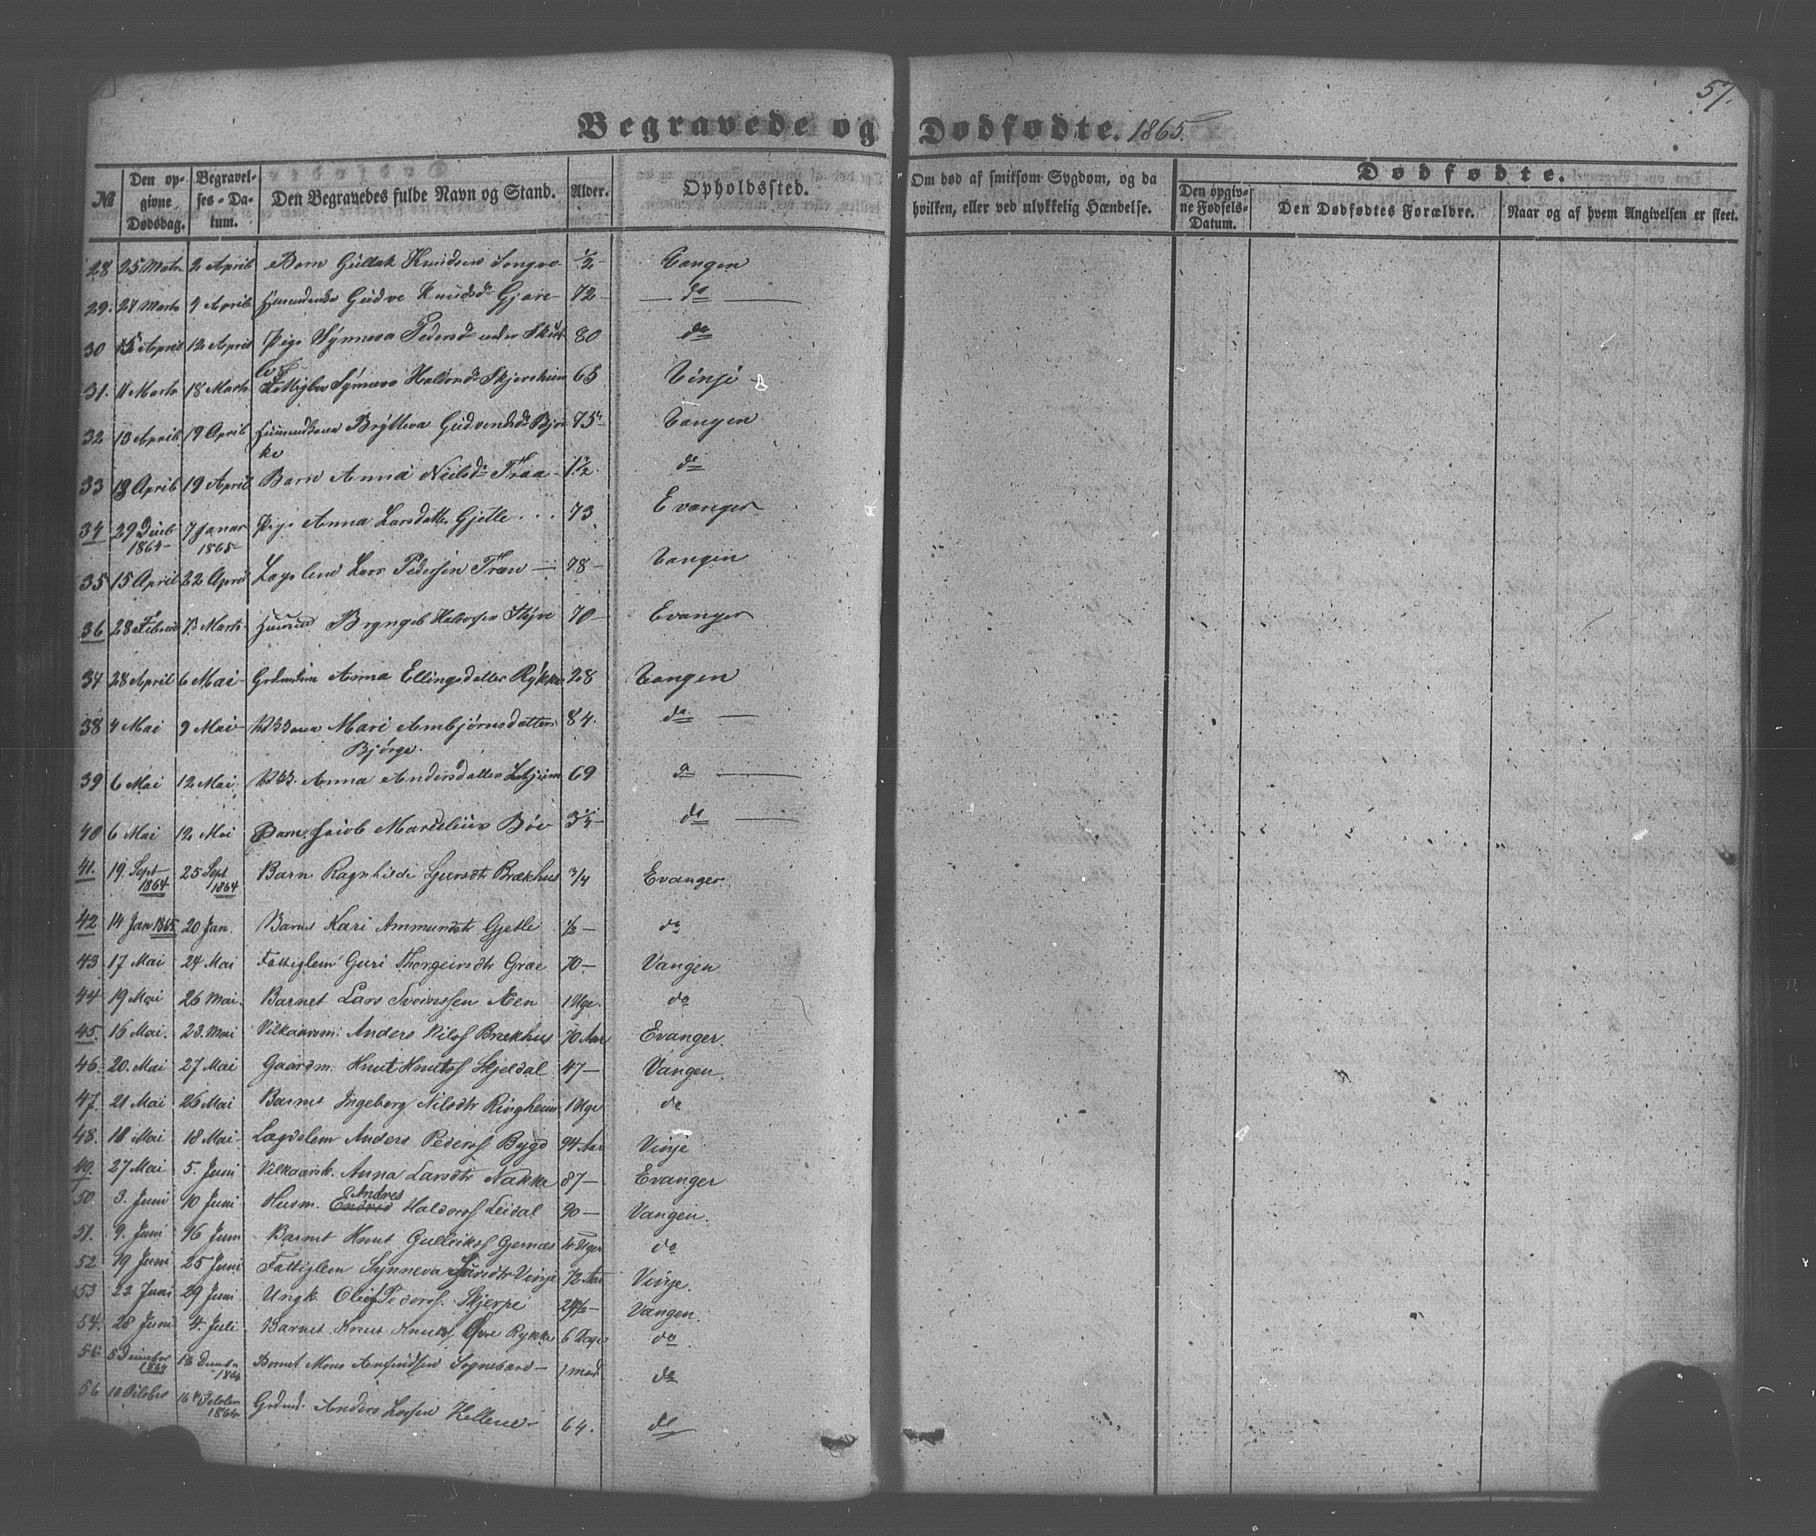 57.
Begravede og Dødfødte. 1865.
№ Den opgivne Dødsdag. Begravelses-Datum. Den Begravedes fulde Navn og Stand. Alder. Opholdssted. Om død af smitsom Sygdom, og da hvilken, eller ved ulykkelig Hændelse. Dødfødte. Den opgivne Fødsels-Datum. Den Dødfødtes Forældre. Naar og af hvem Angivelsen er skeet.
28 25 Marts 2 April Barn Gullak Knudsen ½ Vangen
29. 27 Marts 9 April Gudve Knudsdr Gjære 72 do
30 15 April 12 April Pige Synneva Pedersdr under 80 do
31. 11 Marts 18 Marts Fattiglem Synneva Skjersheim 65 Vinje
32 13 April 19 April Brytteva Gudvendsdr Bjørke 75 Vangen
33 13 April 19 April Barn Anna Neilsdr Traa 1½ do
34 29 Decb 1864 7 Januar 1865 Pige Anna Larsdatter Gjetle 73 Evanger
35 15 April 22 April Lægslem Lars Pedersen Traa 78 Vangen
36 28 Februar 7 Marts Huusmd Bryngel Halvorsen Styve 70 Evanger
37 28 April 6 Mai Anna Ellingsdatter Rykke 28 Vangen
38 4 Mai 9 Mai Mari Arnbjørnsdatter Bjørge. 84. do
39 6 Mai 12 Mai Anna Andersdatter 69 do
40 6 Mai 12 Mai Barn Jacob Marcelius Bøe do
41. 19. Sept 1864 25 Sept 1864 Barn Ragnhilde Sjursdtr Brækhus 3/4 Evanger
42 14 Jan 1865 20 Jan. Barnet Kari Ammundsdtr Gjetle ½ do
43 17 Mai 24 Mai Fattiglem Guri Thorgeirsdtr Græe 70 Vangen
44 19 Mai 26 Mai. Barnet Lars Sveinssen Æen 1 Uge. do
45. 16 Mai. 23. Mai Vilkaarsm. Anders Nilss Brækhus 70 Aar Evanger.
46. 20. Mai 27 Mai Gaardm. Knut Knutss Skjeldal 47 Vangen.
47. 21 Mai 26 Mai Barnet Ingeborg Nilsdtr Ringheim 1 Uge do
48. 11 Mai 18 Mai Lægdslem Anders Pederss Bygd 94 Aar Vinje
49. 27 Mai 5. Juni Vilkaarsk. Anna Larsdtr Nakka 87 Evanger
50. 3. Juni 10 Juni Husm. Endres Andres Haldorss Leidal 90 Vangen.
51. 9. Juni 16 Juni Barnet Knut Gulleikss Gjernæs 4 Uger do
52 19 Juni 25 Juni Fattiglem Synneva Sjursdtr Vinje 72 Aar Vinje.
53 22 Juni 29 Juni Ungk. Oleif Pederss. Skjerpe Vangen.
54. 28 Juni 4. Juli Barnet Knut Knuts Øvre Rykke 6 Dage do
55 5 December 1864 12 Decembr 1864 Barnet Mons Arnfindsen 1 maa do
56 10 Oktober 16 Oktober 1864 Anders Larsen 64. do